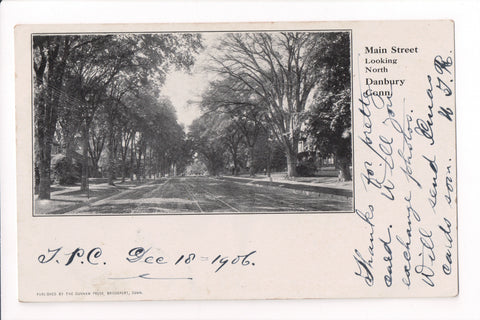 Main Street
Looking
North
Danbury
Conn.
Thanks for pretty
card. Will you
exchange photos.
Will send Xmas
cards soon.
T.P.C. Dec 18-1906.
PUBLISHED BY THE DUNHAM PRESS, BRIDGEPORT, CONN.